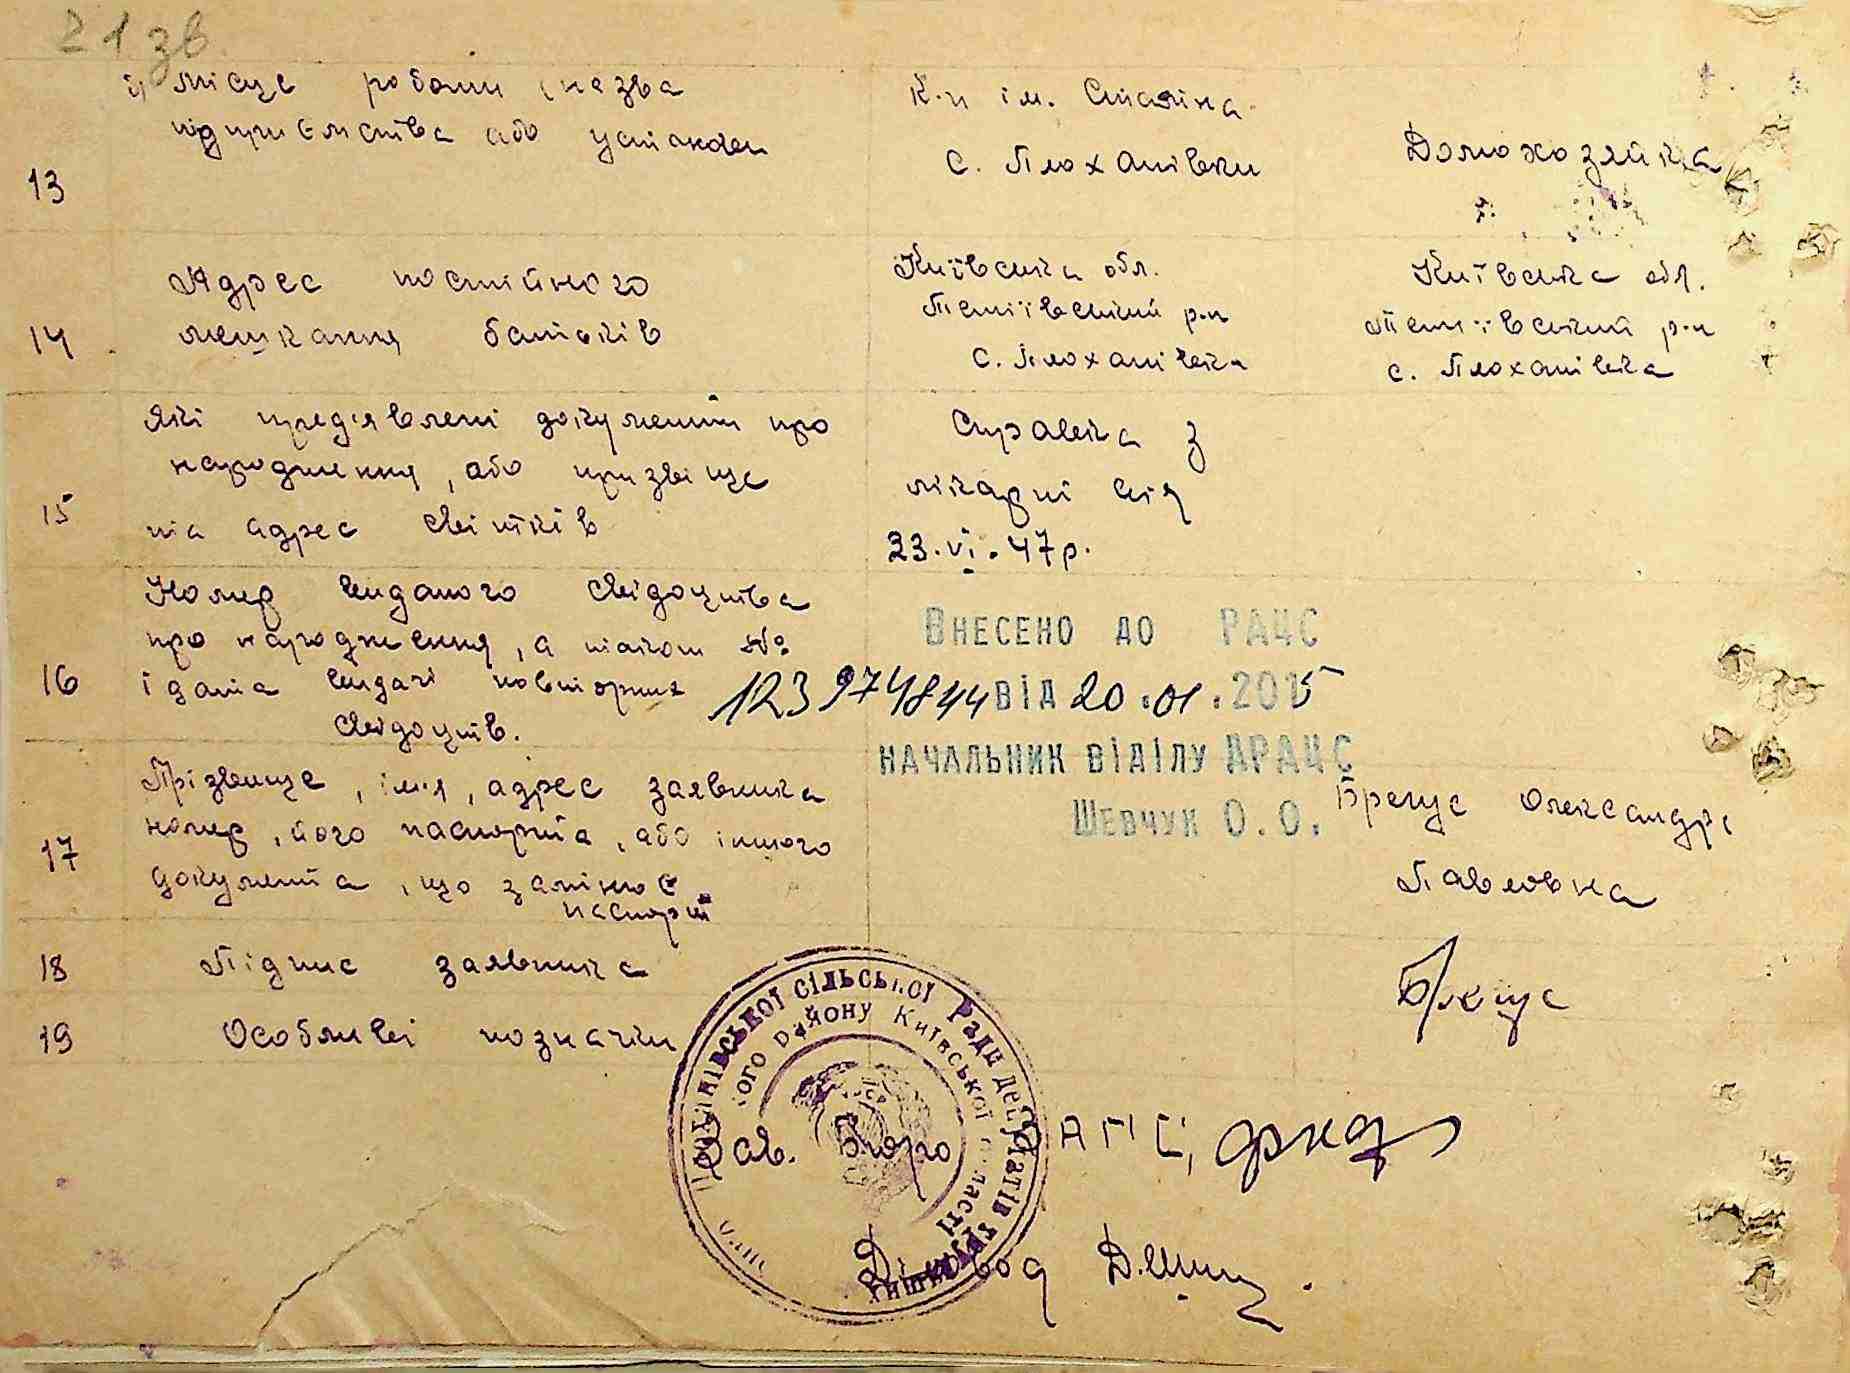 21 зв.
й місце роботи (назва
підприємства або установи
13
К-п ім. Сталіна
с. Плохатівки
Домохозяйка
14
Адрес постійного
мешкання батьків
Київська обл.
Тетіївський р-н
с. Плохатівка
Київська обл.
Тетіївський р-н
с. Плохатівка
15
Які пред'явлені документи про
народження, або призвіще
та адрес світків
Справка з
лікарні від
23.VI.47р.
16
Номер виданого свідоцтва
про народження, а також №
і дата видачі повторних
свідоцтв.
Внесено до РАЦС
123974844 від 20.01.2015
начальник відділу ДРАЦС
Шевчук О.О.
17
Прізвище, ім'я, адрес заявника
номер, його паспорта, або іншого
документа, що заміняє
паспорт
Брегус Олександра
Павловна
18
Підпис заявника
Брегус
19
Особливі позначки
сільської Ради депутатів трудящих
району Київської області
Зав. Бюро ЗАГС,
Діловод